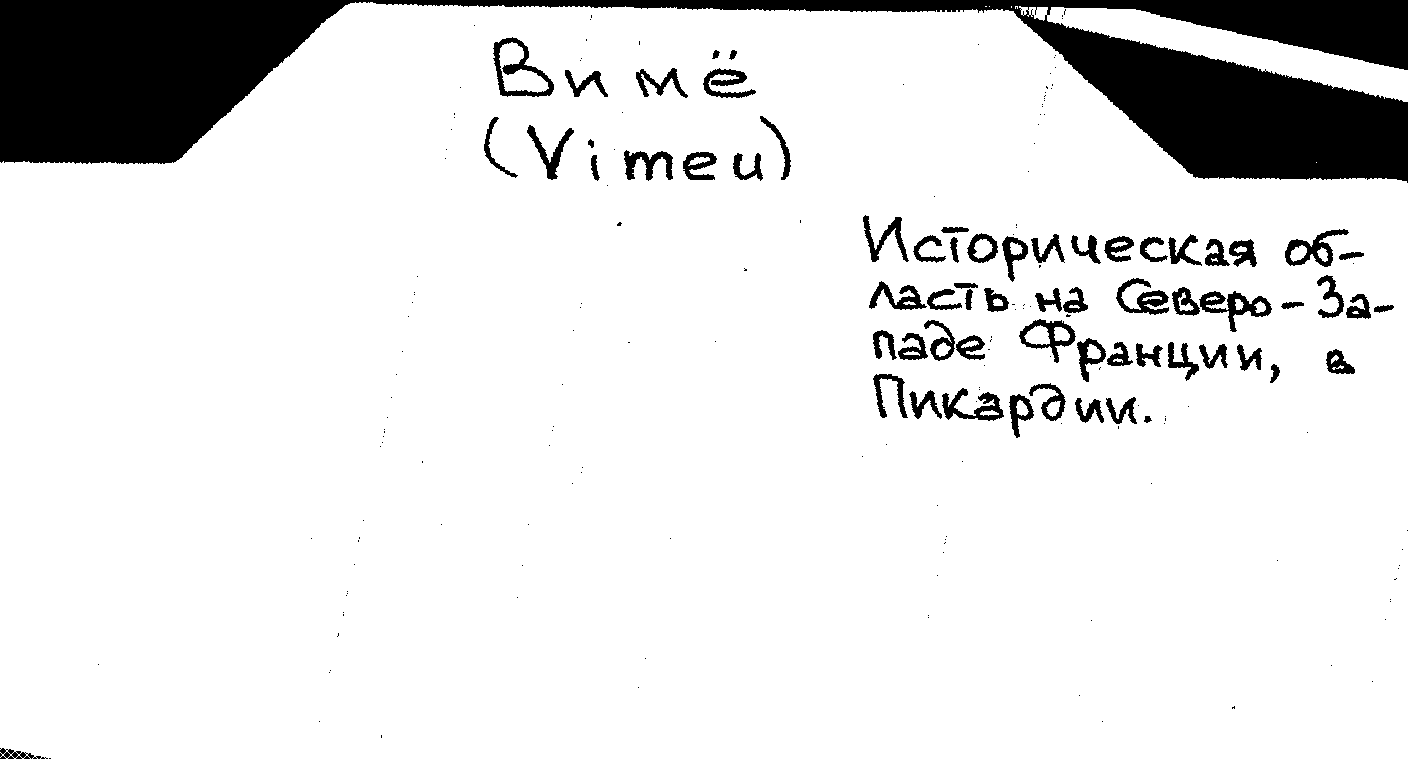 Вимё
(Vimeu)
Историческая об-
ласть на Северо-За-
паде Франции, в
Пикардии.